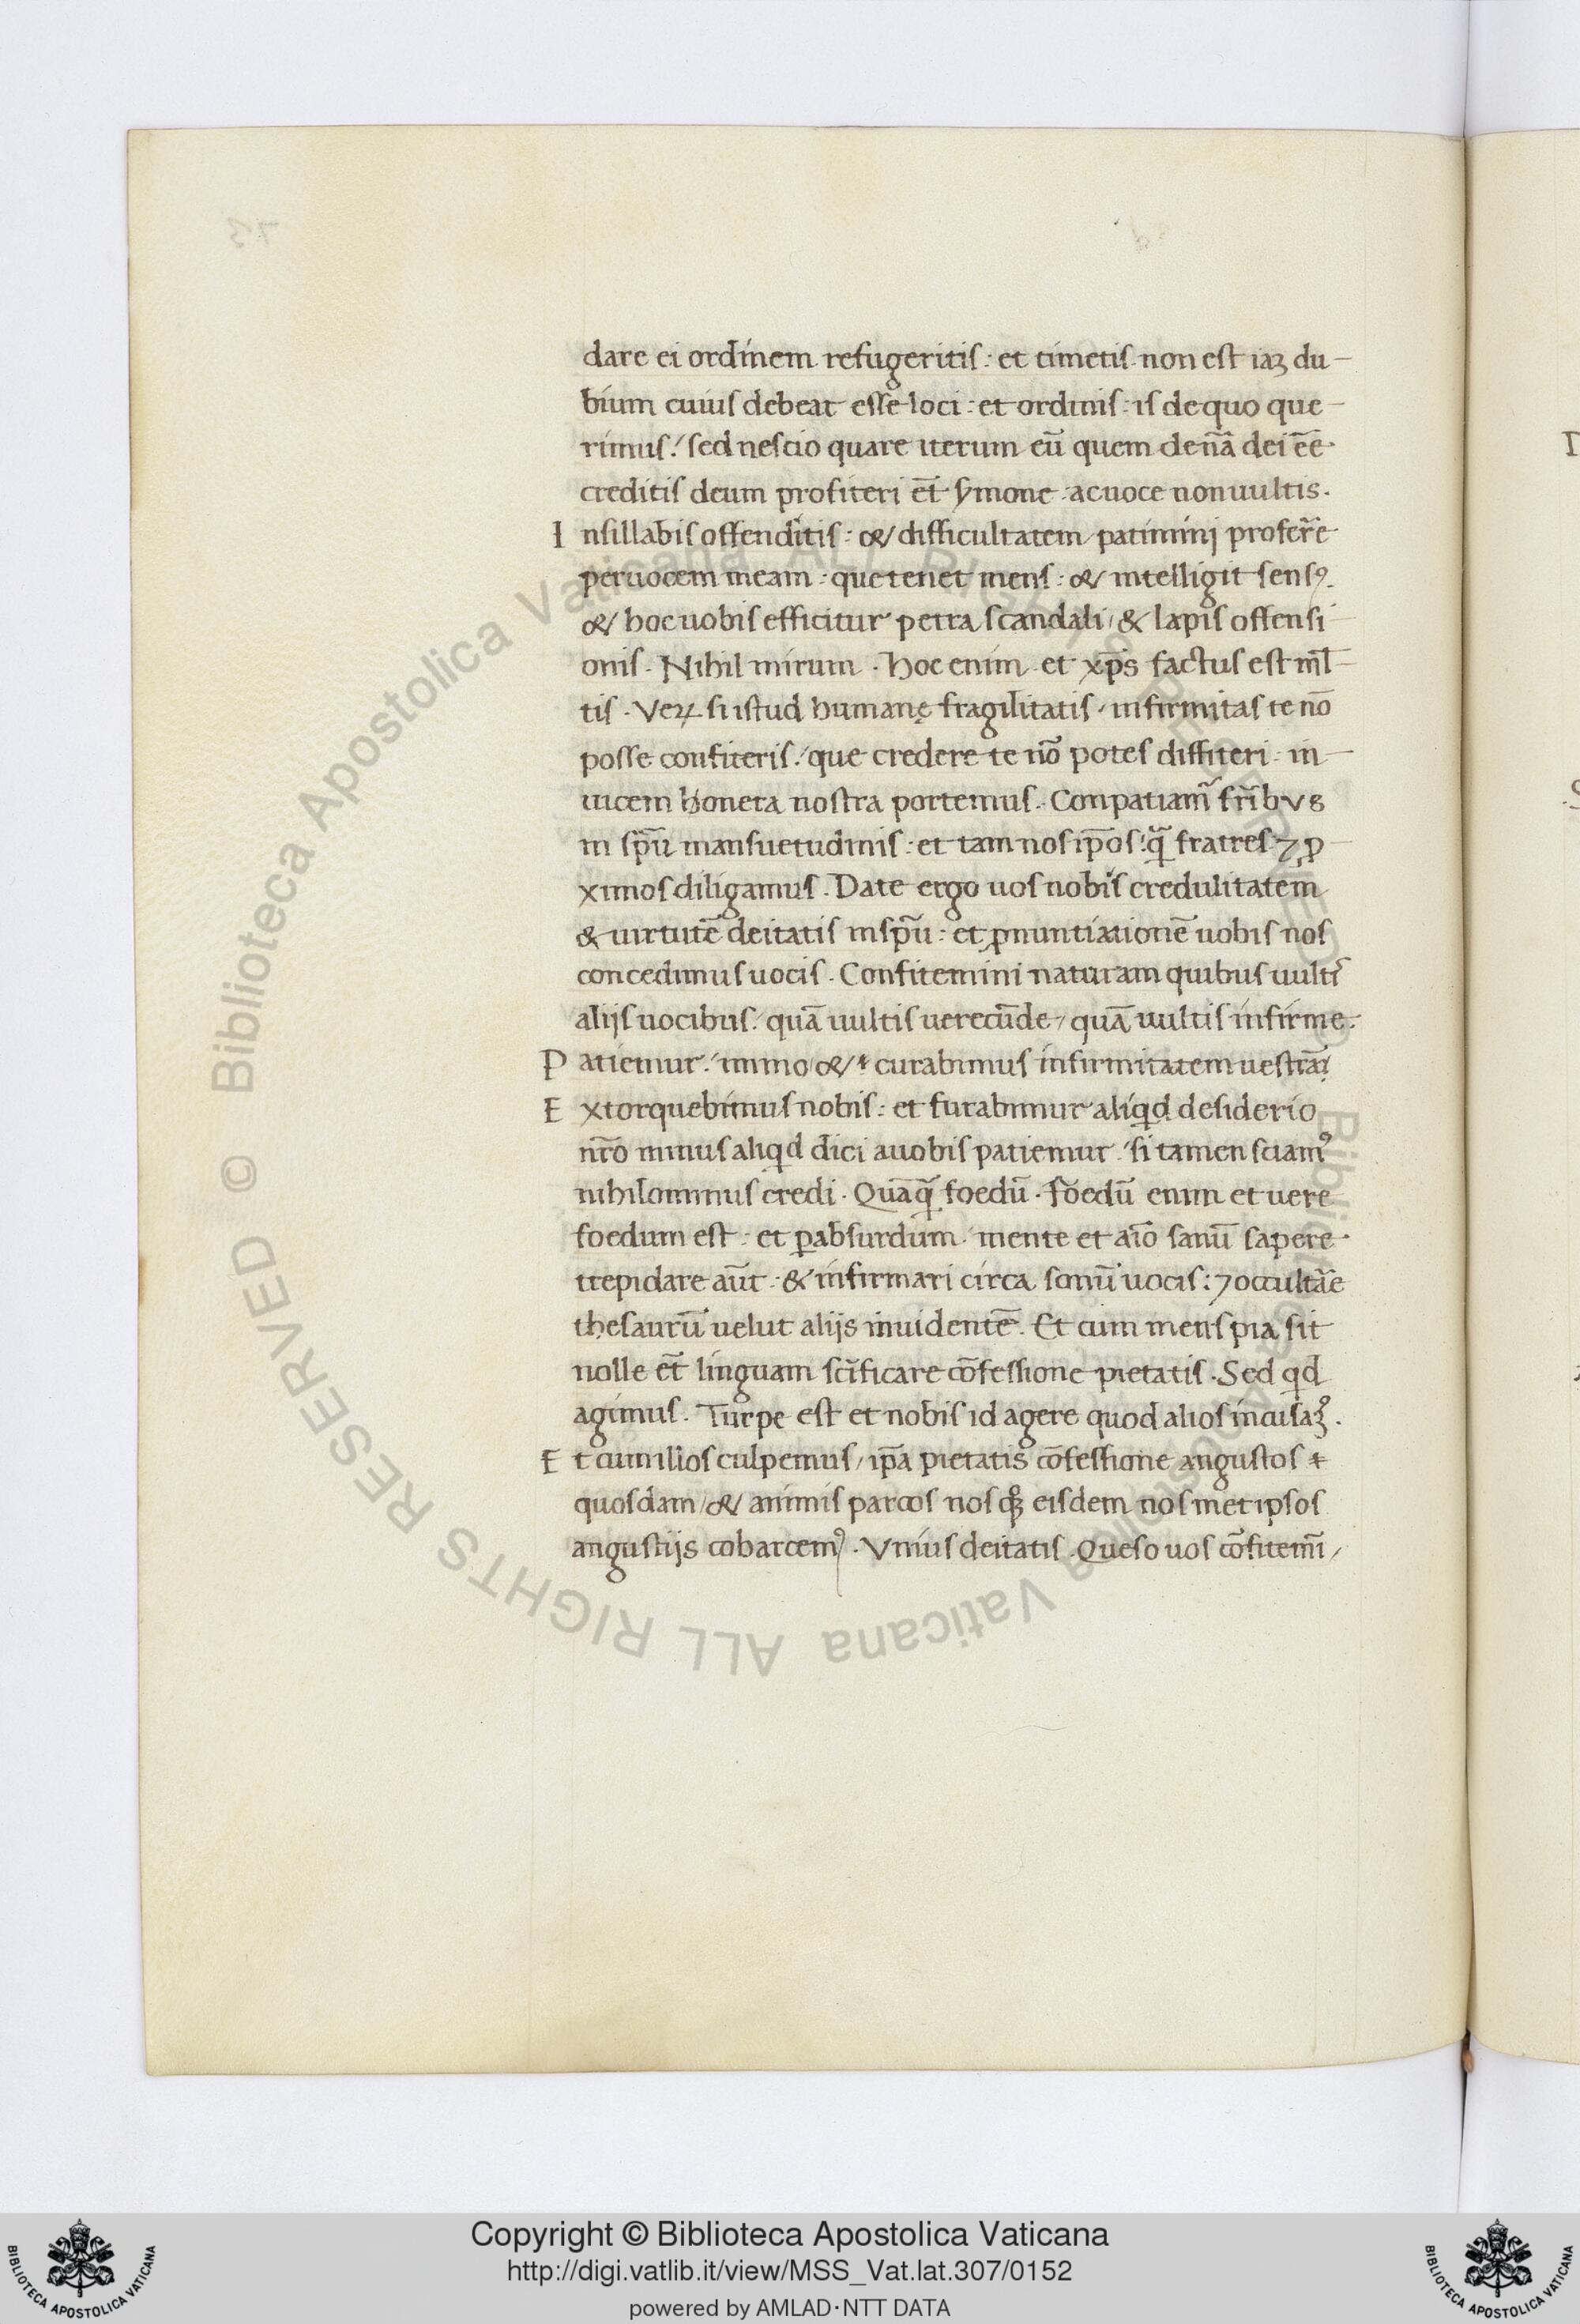 dare ei ordinem refugeritis : et timetis non est iaꝫ du-
bium cuius debeat esse loci : et ordinis : is de quo que-
rimus : sed nescio quare iterum eū quem de nr̄a dei ēē
creditis deum profiteri et̄ ẏmone ac uoce non uultis .
I nsillabis offenditis : & difficultatem patiminj profer̄e
per uocem meam : que tenet mens : & intelligit sensꝰ .
& hoc uobis efficitur petra scandali / & lapis offensi-
onis . Nihil mirum . hoc enim et xp̄s factus est ml̄-
tis . Veꝝ si istud humanę fragilitatis / infirmitas te nō
posse confiteris / que credere te nō potes diffiteri in-
uicem honera nostra portemus . Conpatiam̄ fr̄ibus
in sp̄u mansuetudinis : et tam nos ip̄os / q̄ fratres ⁊ ꝓ-
ximos diligamus . Date ergo uos nobis credulitatem
& uirtutē deitatis in sp̄u : et ꝓnuntiationē uobis nos
concedimus uocis . Confitemini naturam quibus uultꝭ
alijs uocibus / quā uultis uerecūde / quā uultis infirme .
P atiemur / immo & curabimus infirmitatem uestrā
E xtorquebimus nobis : et furabimur aliqd desiderio
nr̄o minus aliqd dici a uobis patiemur / si tamen sciamꝰ
nihilominus credi . Quāq̄ foedū . foedū enim et uere
foedum est : et ꝑabsurdum mente et aīo sanū sapere
trepidare aūt & infirmari circa sonū uocis : ⁊ occultar̄e
thesaurū uelut alijs inuidentē . Et cum mens pia sit
nolle et̄ linguam scīficare cōfessione pietatis . Sed qd
agimus . Turpe est et nobis id agere quod alios incusaꝫꝰ .
E t cum ilios culpemus / ip̄a pietatis cōfessione angustos
quosdam / & animis parcos nosqꝫ eisdem nosmet ipsos
angustijs cohartcemꝰ . Vnius deitatis . Queso uos cōfitemī /
Copyright © Biblioteca Apostolica Vaticana
http://digi.vatlib.it/view/MSS_Vat.lat.307/0152
powered by AMLAD·NTT DATA
© Biblioteca Apostolica Vaticana ALL RIGHTS RESERVED
© Biblioteca Apostolica Vaticana ALL RIGHTS RESERVED
BIBLIOTECA APOSTOLICA VATICANA
BIBLIOTECA APOSTOLICA VATICANA